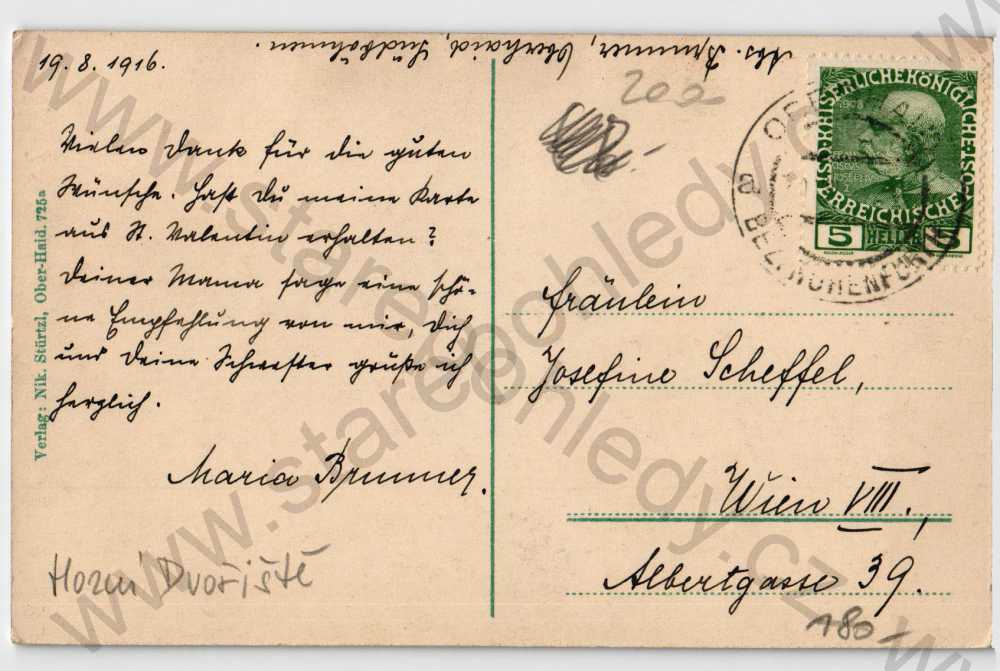 19. 8. 1916.
Abs. Brunner, Oberhaid, Südböhmen.
Vielen Dank für die guten
Wünsche. Hast Du meine Karte
aus St. Valentin erhalten?
Deiner Mama sage eine schö-
ne Empfehlung von mir, Dich
und Deine Schwester grüße ich
herzlich.
Maria Brunner.
Horní Dvořiště
Verlag: Nik. Stürtzl, Ober-Haid. 725a
200
KAISERLICHE KÖNIGLICHE
ÖSTERREICHISCHE
1908
5 HELLER 5
a
BEZ. HOHENFURTH
Fräulein
Josefine Scheffel,
Wien VIII.,
Albertgasse 39.
180-
www.starepohledy.cz